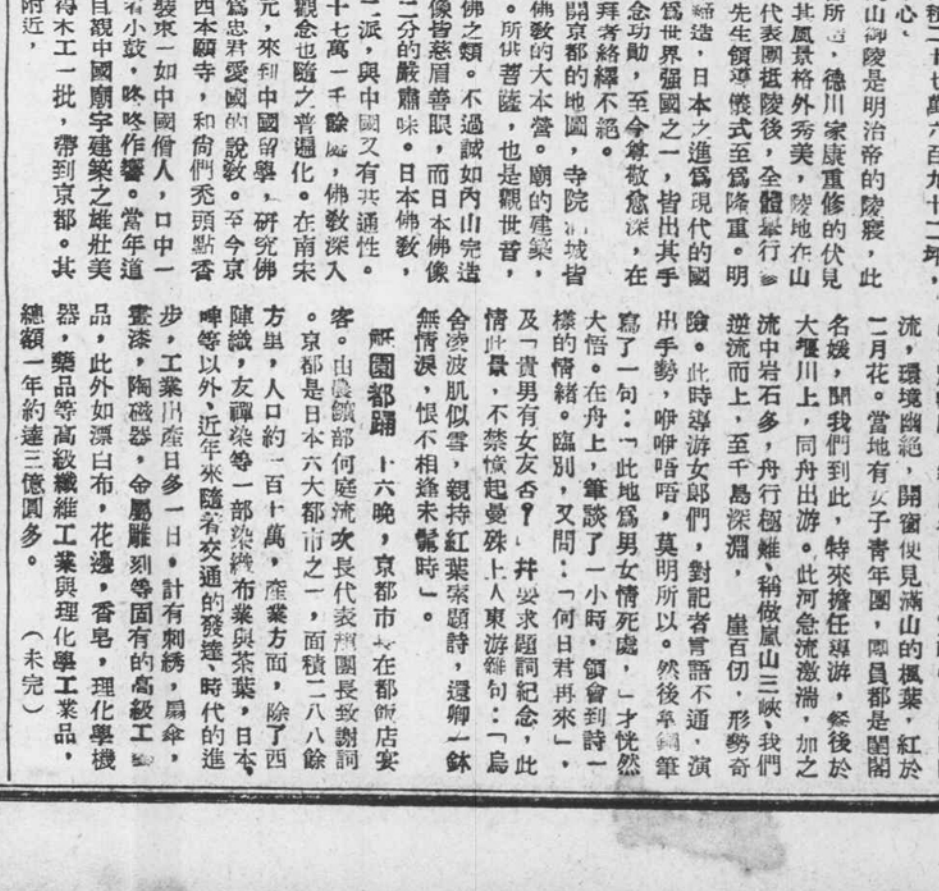 積二十七萬六百九十二坪，
心．
山御陵是明治帝的陵寢，此
所，德川家康重修的伏見
其風景格外秀美，陵地在山
代表團抵陵後，全體舉行參
先生領導儀式至爲隆重。明
締造，日本之進爲現代的國
爲世界强國之一，皆出其手
念功勛，至今尊敬愈深，在
拜者絡繹不絕。
開京都的地圖，寺院城皆
佛教的大本營。廟的建築，
。所供菩薩，也是觀世音，
佛之類。不過誠如內山完造
像皆慈眉善眼，而日本佛像
二分的嚴肅味。日本佛教，
一派，與中國又有共通性。
十七萬一千餘處，佛教深入
觀念也隨之普遍化。在南宋
元，來到中國留學，研究佛
爲忠君愛國的說教。至今京
西本願寺，和尚們禿頭點香
裝束一如中國僧人，口中一
着小鼓，咚咚作響。當年道
目覩中國廟宇建築之雄壯美
得木工一批，帶到京都。其
附近，
流，環境幽絕，開窗便見滿山的楓葉，紅於
二月花。當地有女子青年團，團員都是閨閣
名媛，聞我們到此，特來擔任導游，餐後於
大堰川上，同舟出游。此河急流激湍，加之
流中岩石多，舟行極難、稱做嵐山三峽、我們
逆流而上，至千島深淵，崖百仞，形勢奇
險。此時導游女郎們，對記者言語不通，演
出手勢，咿咿唔唔，莫明所以。然後拿鋼筆
寫了一句：「此地爲男女情死處，」才恍然
大悟。在舟上，筆談了一小時，領會到詩一
樣的情緒。臨別，又問：「何日君再來」，
及「貴男有女友否？」幷要求題詞紀念，此
情此景，不禁憶起曼殊上人東游雜句：「烏
舍凌波肌似雪，親持紅葉索題詩，還卿一鉢
無情淚，恨不相逢未鬀時」。
祇園都踊　十六晚，京都市長在都飯店宴
客。由農鑛部何庭流次長代表團長致謝詞
。京都是日本六大都市之一，面積二八八餘
方里，人口約一百十萬，產業方面，除了西
陣織，友禪染等一部染織布業與茶葉，日本
啤等以外，近年來隨着交通的發達、時代的進
步，工業出產日多一日，計有刺綉，扇傘，
畫漆，陶磁器，金屬雕刻等固有的高級工藝
品，此外如漂白布，花邊，香皂，理化學機
器，藥品等高級纖維工業與理化學工業品，
總額一年約達三億圓多。　（未完）